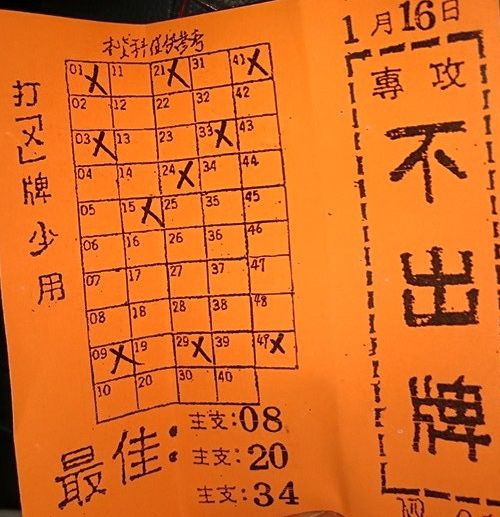 本資料僅供參考
01 11 21 31 41
02 12 22 32 42
03 13 23 33 43
04 14 24 34 44
05 15 25 35 45
06 16 26 36 46
07 17 27 37 47
08 18 28 38 48
09 19 29 39 49
10 20 30 40
打「X」牌少用
最佳:
主支:08
主支:20
主支:34
1月16日
專攻
不出牌